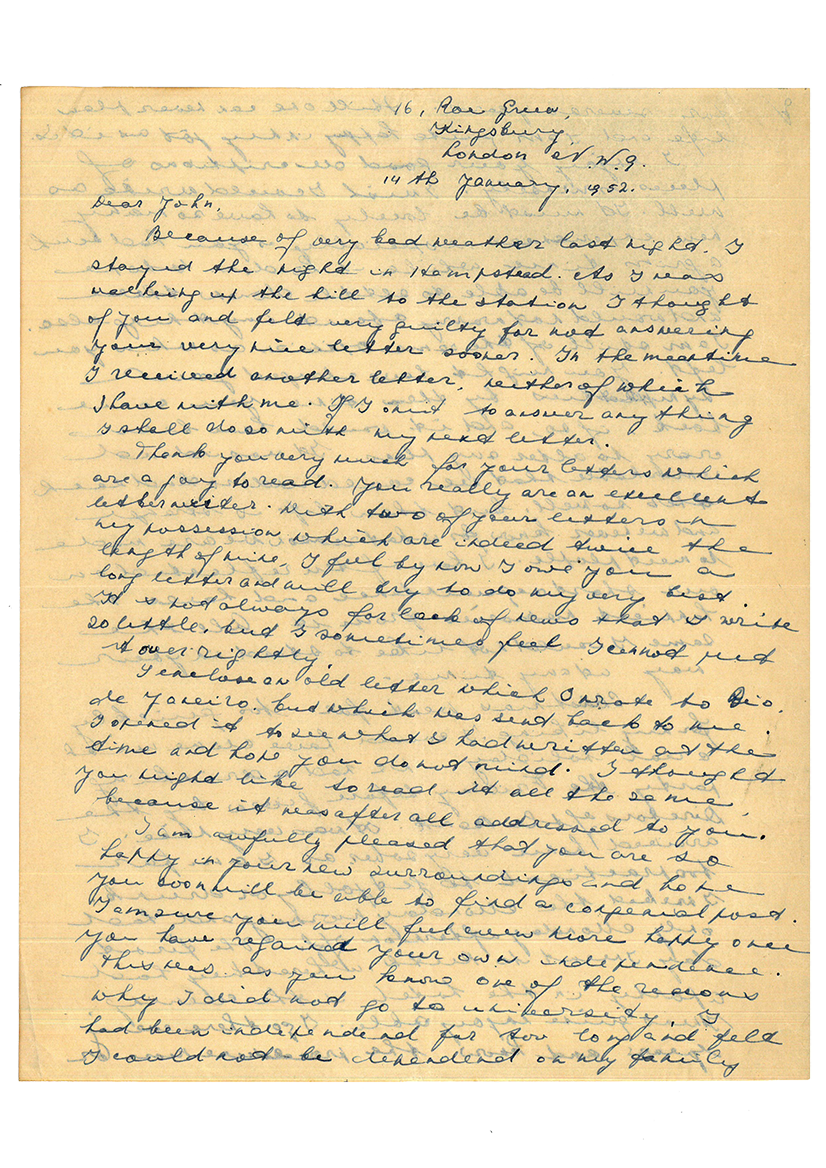 16, Roe Green,
Kingsbury,
London N.W.9.
14th January, 1952.
Dear John,
Because of very bad weather last night, I
stayed the night in Hampstead. As I was
walking up the hill to the station I thought
of you and felt very guilty for not answering
your very nice letter sooner. In the meantime
I received another letter, neither of which
I have with me. If I omit to answer anything
I shall do so with my next letter.
Thank you very much for your letters which
are a joy to read. You really are an excellent
letterwriter. With two of your letters in
my possession which are indeed twice the
length of mine, I feel by now I owe you a
long letter and will try to do my very best.
It is not always for lack of news that I write
so little, but I sometimes feel I cannot put
it over rightly.
I enclose an old letter which I wrote to Rio
de Janeiro, but which was sent back to me.
I opened it to see what I had written at the
time and hope you do not mind. I thought
you might like to read it all the same,
because it was after all addressed to you.
I am awfully pleased that you are so
happy in your new surroundings and hope
you soon will be able to find a congenial post.
I am sure you will feel even more happy once
you have regained your own independence.
This was as you know one of the reasons
why I did not go to university, I
had been independend for too long and felt
I could not be dependend on my family